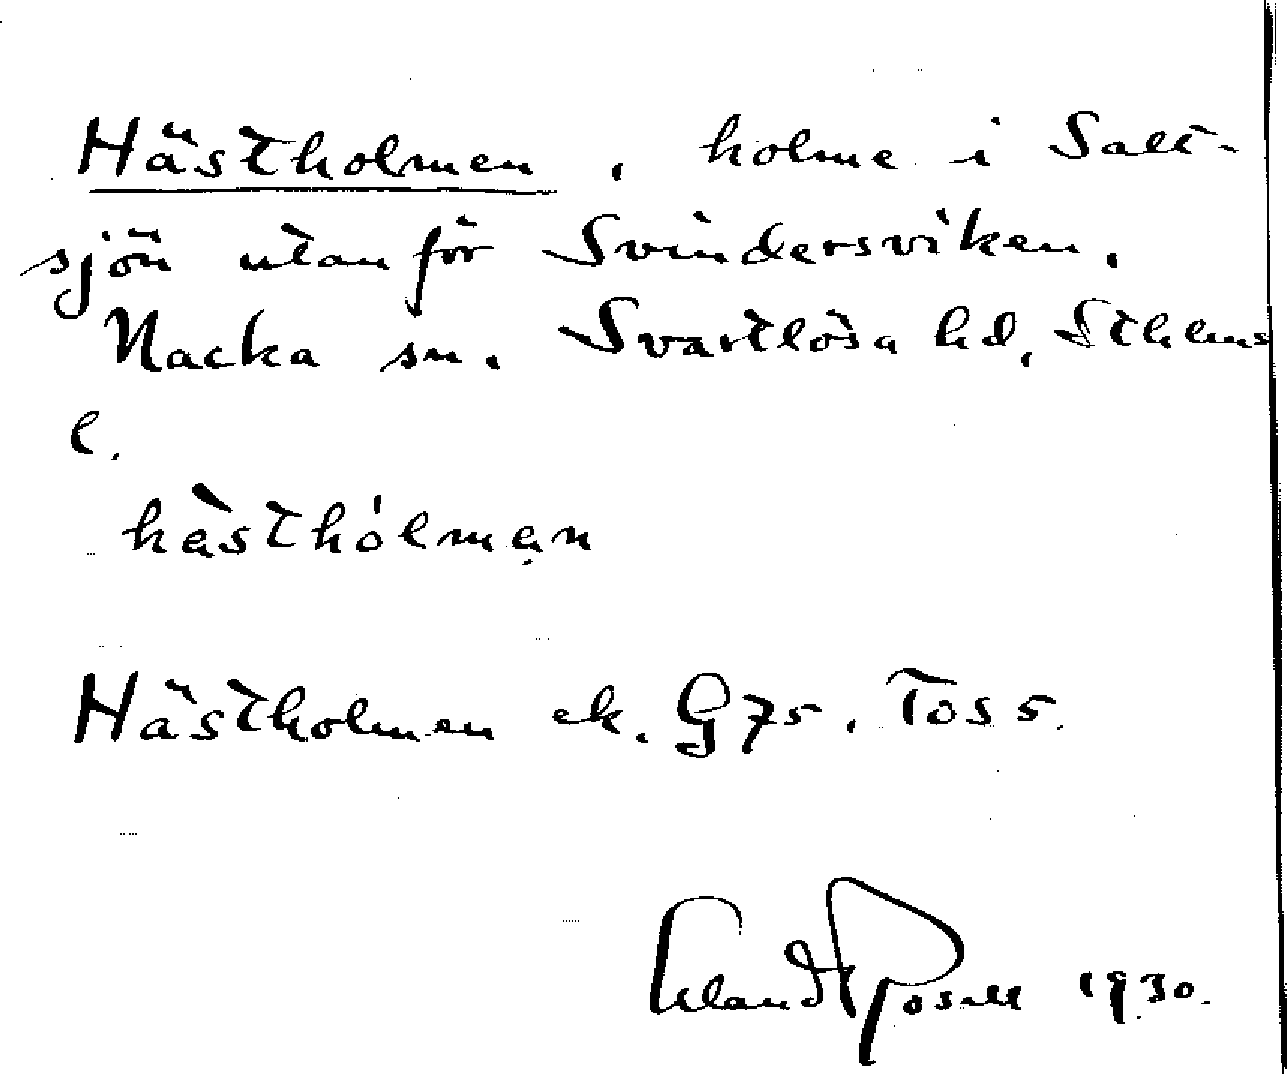 Hästholmen, holme i Salt-
sjön utanför Svindersviken,
Nacka sn. Svartlösa hd, Sthlms
l.
hàsthólmạn
Hästholmen ek. G 75. Tos 5.
Erland Rosell 1930.